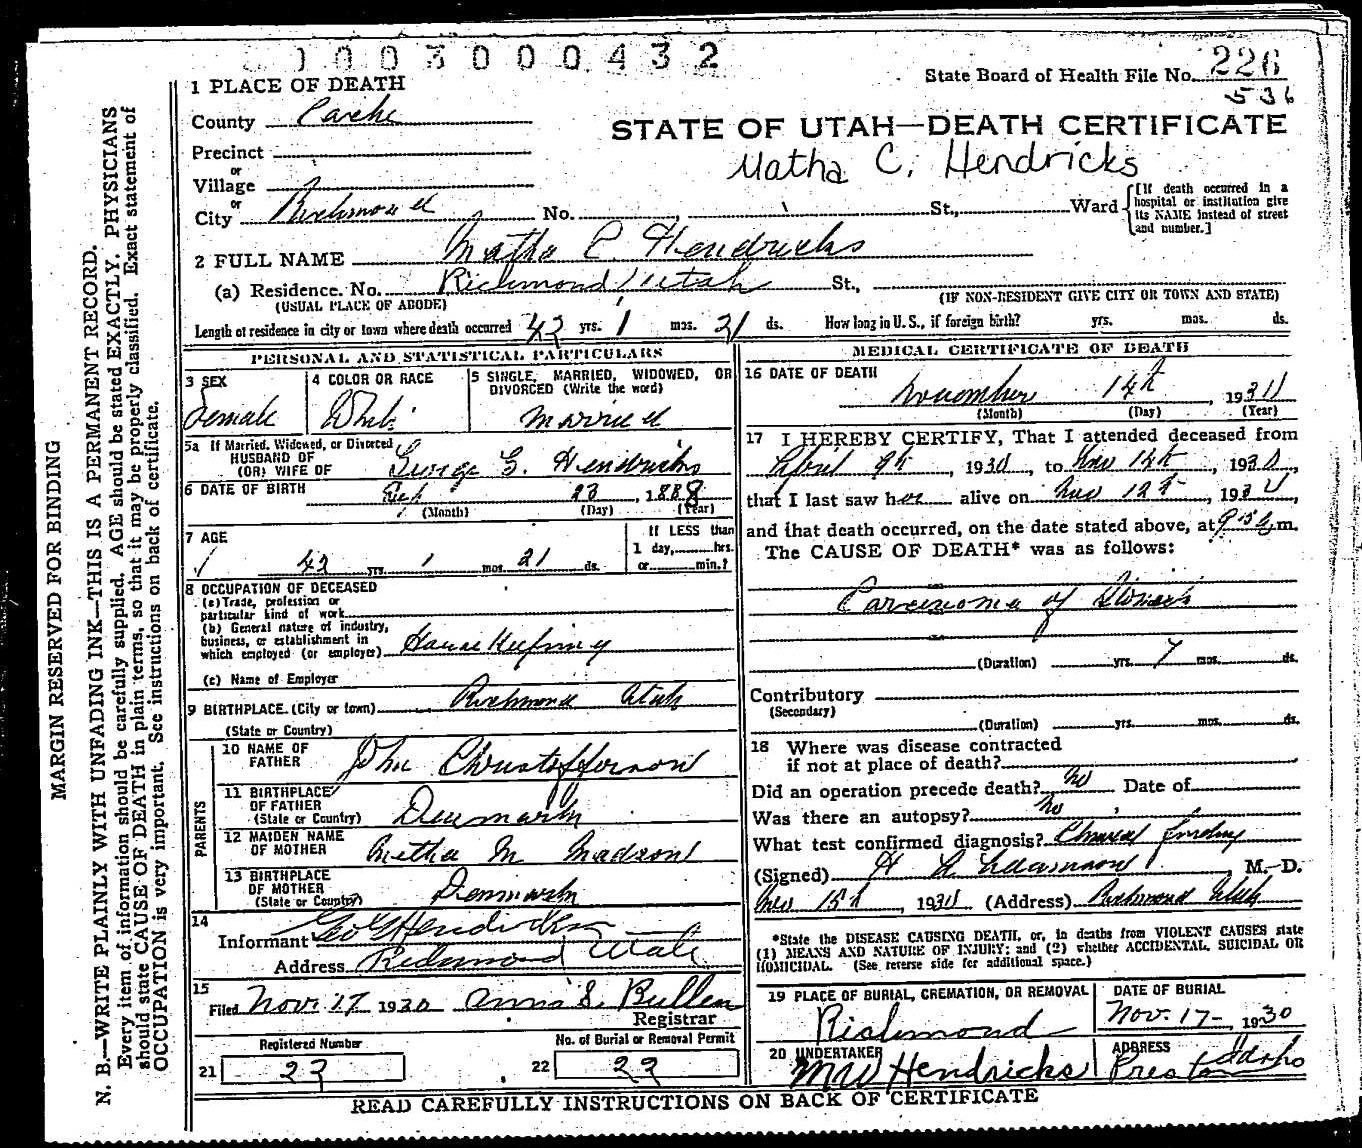 0003000432
State Board of Health File No. 226
536
1 PLACE OF DEATH
County Cache
STATE OF UTAH—DEATH CERTIFICATE
Precinct
Matha C. Hendricks
or
Village
or
City Richmond No. St., Ward
[If death occurred in a hospital or institution give its NAME instead of street and number.]
2 FULL NAME Matha C. Hendricks
(a) Residence. No. Richmond Utah St.,
(USUAL PLACE OF ABODE) (IF NON-RESIDENT GIVE CITY OR TOWN AND STATE)
Length of residence in city or town where death occurred 42 yrs. 1 mos. 21 ds. How long in U. S., if foreign birth? yrs. mos. ds.
PERSONAL AND STATISTICAL PARTICULARS
3 SEX
Female
4 COLOR OR RACE
White
5 SINGLE, MARRIED, WIDOWED, OR DIVORCED (Write the word)
Married
5a If Married, Widowed, or Divorced
HUSBAND OF
(OR) WIFE OF George G. Hendricks
6 DATE OF BIRTH 23, 1888
(Month) (Day) (Year)
7 AGE
42 yrs. 1 mos. 21 ds.
If LESS than
1 day, hrs.
or min.?
8 OCCUPATION OF DECEASED
(a) Trade, profession or
particular kind of work
(b) General nature of industry,
business, or establishment in
which employed (or employer) House Keeping
(c) Name of Employer
9 BIRTHPLACE (City or town) Richmond Utah
(State or Country)
PARENTS
10 NAME OF
FATHER John Christofferson
11 BIRTHPLACE
OF FATHER
(State or Country) Denmark
12 MAIDEN NAME
OF MOTHER Metha M Madson
13 BIRTHPLACE
OF MOTHER
(State or Country) Denmark
14
Informant Geo G Hendricks
Address Richmond Utah
15
Filed Nov. 17 1930 Anna S. Bullen
Registrar
Registered Number
21 23
No. of Burial or Removal Permit
22 22
MEDICAL CERTIFICATE OF DEATH
16 DATE OF DEATH
November 14th, 1930
(Month) (Day) (Year)
17 I HEREBY CERTIFY, That I attended deceased from
April 9th, 1930, to Nov 14th, 1930,
that I last saw her alive on Nov 12th, 1930,
and that death occurred, on the date stated above, at m.
The CAUSE OF DEATH* was as follows:
Carcinoma of
(Duration) yrs. 7 mos. ds.
Contributory
(Secondary)
(Duration) yrs. mos. ds.
18 Where was disease contracted
if not at place of death?
Did an operation precede death? No Date of
Was there an autopsy? No
What test confirmed diagnosis? Clinical finding
(Signed) Adamson M.-D.
Nov 15th, 1930 (Address) Richmond Utah
*State the DISEASE CAUSING DEATH, or, in deaths from VIOLENT CAUSES state
(1) MEANS AND NATURE OF INJURY; and (2) whether ACCIDENTAL, SUICIDAL OR
HOMICIDAL. (See reverse side for additional space.)
19 PLACE OF BURIAL, CREMATION, OR REMOVAL
Richmond
DATE OF BURIAL
Nov. 17-, 1930
20 UNDERTAKER
MW Hendricks
ADDRESS
Preston Idaho
READ CAREFULLY INSTRUCTIONS ON BACK OF CERTIFICATE
MARGIN RESERVED FOR BINDING
N. B.—WRITE PLAINLY WITH UNFADING INK—THIS IS A PERMANENT RECORD.
Every item of information should be carefully supplied. AGE should be stated EXACTLY. PHYSICIANS
should state CAUSE OF DEATH in plain terms, so that it may be properly classified. Exact statement of
OCCUPATION is very important. See instructions on back of certificate.